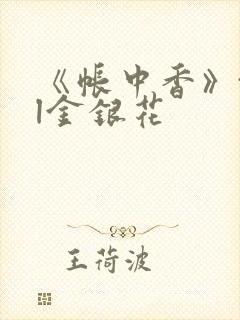 《帐中香》
l金银花
王荷波